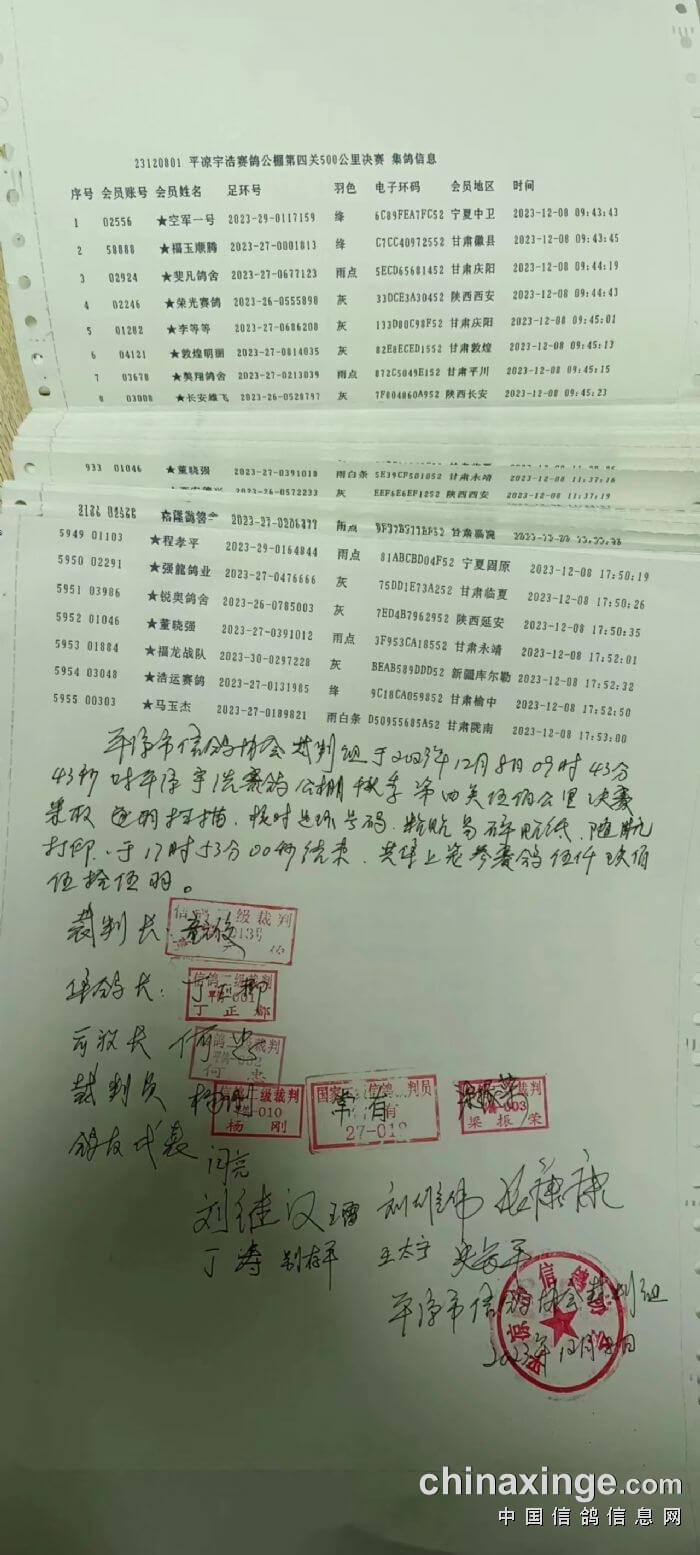 23120801 平凉宇浩赛鸽公棚第四关500公里决赛 集鸽信息
序号 会员账号 会员姓名 足环号 羽色 电子环码 会员地区 时间
1 02556 ★空军一号 2023-29-0117159 绛 6C89FEA7FC52 宁夏中卫 2023-12-08 09:43:43
2 58888 ★福玉顺腾 2023-27-0001813 绛 C7CC40972552 甘肃徽县 2023-12-08 09:43:45
3 02924 ★斐凡鸽舍 2023-27-0677123 雨点 5ECD65681452 甘肃庆阳 2023-12-08 09:44:19
4 02246 ★荣光赛鸽 2023-26-0555898 灰 33DCE3A30452 陕西西安 2023-12-08 09:44:43
5 01282 ★李等等 2023-27-0686208 灰 133D80C98F52 甘肃庆阳 2023-12-08 09:45:01
6 04121 ★敦煌明珊 2023-27-0814035 灰 82E8ECED1552 甘肃敦煌 2023-12-08 09:45:13
7 03678 ★奥翔鸽舍 2023-27-0213039 雨点 872C5049E152 甘肃平川 2023-12-08 09:45:15
8 03008 ★长安雄飞 2023-26-0528797 灰 7F804860A952 陕西长安 2023-12-08 09:45:23
933 01046 ★董晓强 2023-27-0391018 雨白条 5E39CF501052 甘肃永靖 2023-12-08 11:37:16
2023-26-0572233 灰 EEF6E6EF1252 陕西西安 2023-12-08 11:37:19
5949 01103 ★程孝平 2023-29-0164844 雨点 81ABCBD04F52 宁夏固原 2023-12-08 17:50:19
5950 02291 ★强龍鸽业 2023-27-0476666 灰 75DD1E73A252 甘肃临夏 2023-12-08 17:50:26
5951 03986 ★锐奥鸽舍 2023-26-0785003 灰 7ED4B7962952 陕西延安 2023-12-08 17:50:35
5952 01046 ★董晓强 2023-27-0391012 雨点 3F953CA18552 甘肃永靖 2023-12-08 17:52:01
5953 01884 ★福龙战队 2023-30-0297228 灰 BEAB589DDD52 新疆库尔勒 2023-12-08 17:52:32
5954 03048 ★浩运赛鸽 2023-27-0131985 绛 9C18CA059852 甘肃榆中 2023-12-08 17:52:50
5955 00303 ★马玉杰 2023-27-0189821 雨白条 D50955685A52 甘肃陇南 2023-12-08 17:53:00
平凉市信鸽协会裁判组于2023年12月8日09时43分
43秒对平凉宇浩赛鸽公棚秋季第四关伍佰公里决赛
采取逐羽扫描、核对足环号码、粘贴易碎贴纸、随机
打印、于17时53分00秒结束、共集上笼参赛鸽伍仟玖佰
伍拾伍羽。
裁判长:
信鸽二级裁判
集鸽长: 丁正娜
信鸽二级裁判
丁正娜
司放长 何忠
何忠
裁判员 杨刚 常有 梁振荣
杨刚
国家 信鸽 判员
27-01
梁振荣
鸽友代表 闫亮
刘继汉 王雷
丁涛 王太宇
平凉市信鸽协会裁判组
2023年12月8日
chinaxinge.com
中国信鸽信息网